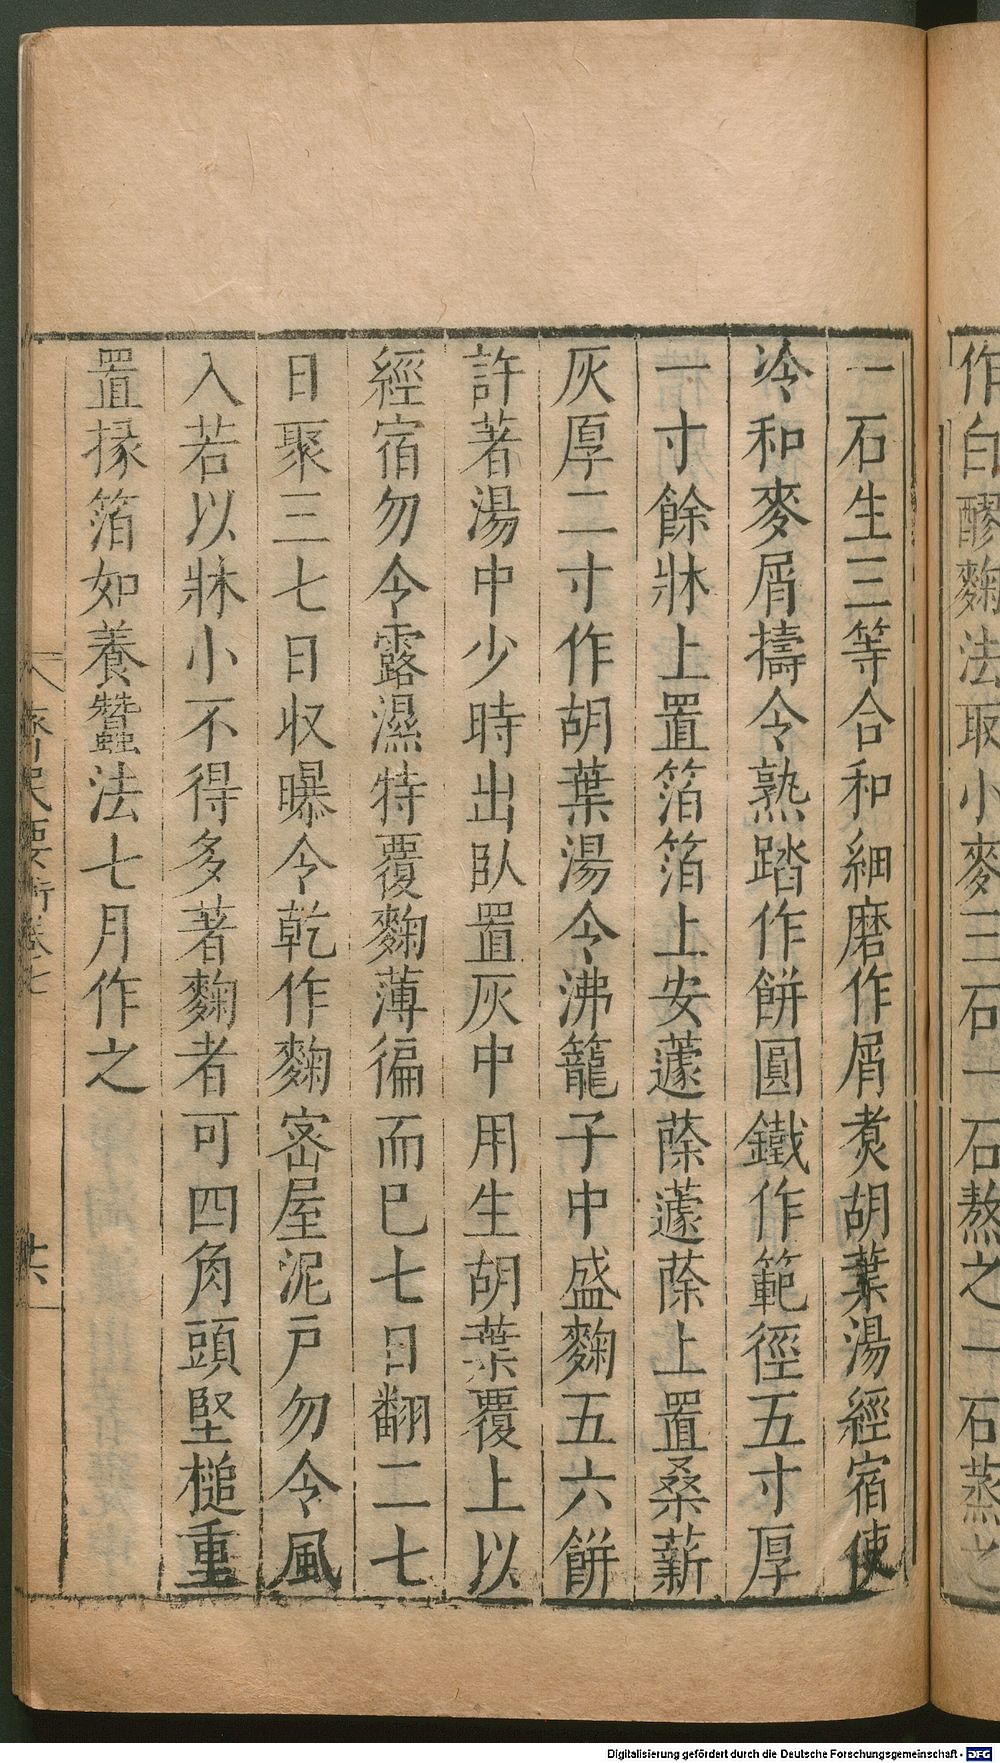 作白醪麴法取小麥三石一石熬之一石蒸之
一石生三等合和細磨作屑煑胡葉湯經宿使
冷和麥屑擣令熟踏作餅圓鐵作範徑五寸厚
一寸餘牀上置箔箔上安蘧蒢蘧蒢上置桑薪
灰厚二寸作胡葉湯令沸籠子中盛麴五六餅
許著湯中少時出臥置灰中用生胡葉覆上以
經宿勿令露濕特覆麴薄徧而巳七日翻二七
日聚三七日収曝令乾作麴宻屋泥戸勿令風
入若以牀小不得多著麴者可四角頭堅槌重
置掾箔如養蠶法七月作之
齊民要術卷七
廿六
Digitalisierung gefördert durch die Deutsche Forschungsgemeinschaft - DFG